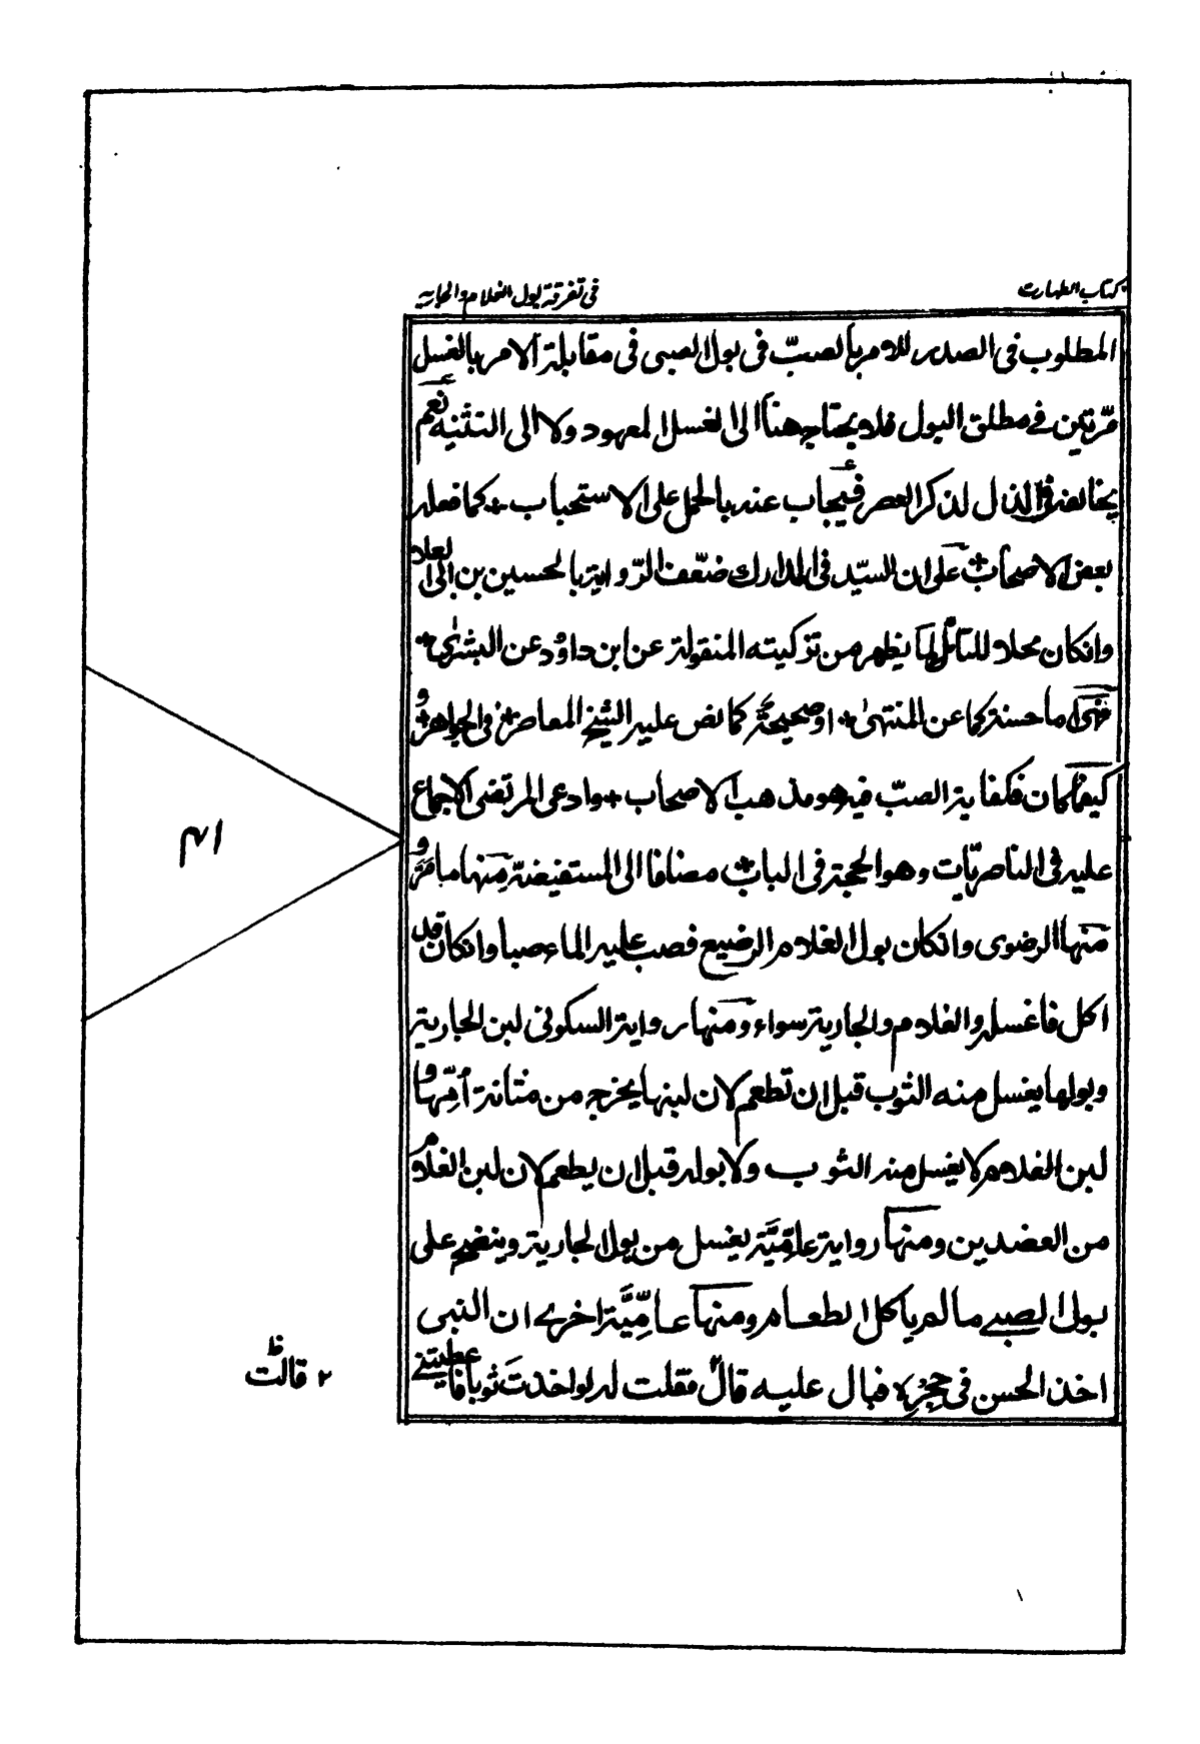 كتاب الطهارت
في تفرقة بول الغلام والجاريه
المطلوب في الصدر للامر بالصبّ في بول الصبى في مقابلة الامر بالغسل
مرّتين في مطلق البول فلا يحتاج هنا الى الغسل المعهود ولا الى التثنيه نعم
يخالفه في الذيل لذكر العصر فيجاب عنه بالحمل على الاستحباب كما فعله
بعض الاصحاب على ان السيّد في المدارك ضعّف الرّواية بالحسين بن ابى العلا
وانكان محلا للتأمل لما يظهر من تزكيته المنقولة عن ابن داؤد عن البشرىٰ
فهى اما حسنة كما عن المنتهىٰ او صحيحة كما نص عليه الشيخ المعاصر في الجواهر و
كيفما كان فكفاية الصبّ فيه هو مذهب الاصحاب وادعى المرتضى الاجماع
عليه في الناصريّات وهو الحجة في الباب مضافا الى المستفيضة منها ما مرّ و
منها الرضوى وانكان بول الغلام الرضيع فصب عليه الماء صبا وانكان قد
اكل فاغسله والغلام والجارية سواء ومنها رواية السكونى لبن الجارية
وبولها يغسل منه الثوب قبل ان تطعم لان لبنها يخرج من مثانة امّها و
لبن الغلام لا يغسل منه الثوب ولا بوله قبل ان يطعم لان لبن الغلام
من العضدين ومنها رواية عامّيّة يغسل من بول الجارية وينضح على
بول الصبي ما لم ياكل الطعام ومنها عامّيّة اخرى ان النبى
اخذ الحسن في حجره فبال عليه قال۲ فقلت له لو اخذت ثوبا فاعطيتنى
۴۱
۲ قالت ظ